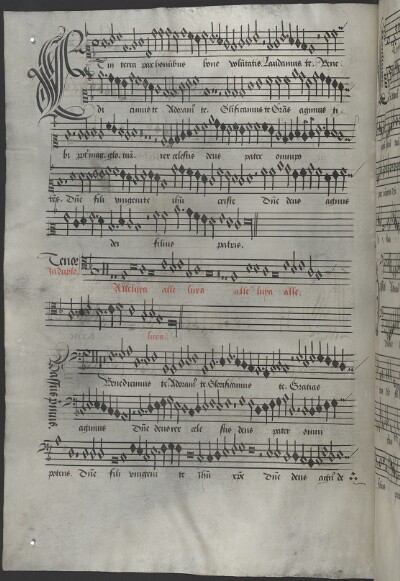 Et in terra pax hominibus bone voluntatis. Laudamus te. Bene
di cimus te Adoram⁹ te. Glificamus te Gr̄as agimus ti
bi ppt̄ mag. glo. tuā. rex celestis deus pater omnipo
tēs. Dn̄e fili unigenite ihū criste Dn̄e deus agnus
dei filius patris.
Tenor
In duplo.
Alleluya alle luya alle luya alle.
luya.
Bassus primus.
Benedicimus te Adoram⁹ te Glorificamus te. Gratias
agimus Dn̄e deus rex cele stis deus pater omni
potens. Dn̄e fili unigeni te ihū xp̄e Dn̄e deus agn⁹ de